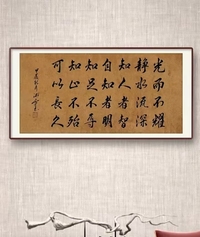 光而不耀
静水流深
知人者智
自知者明
知足不辱
知止不殆
可以长久